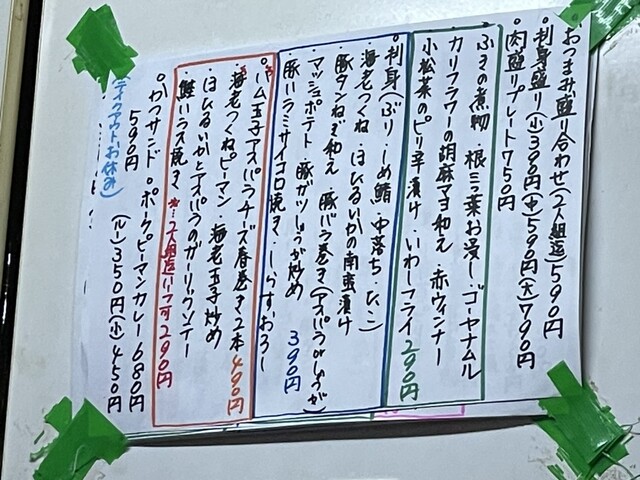 おつまみ盛り合わせ(2人組迄)590円
刺身盛り(小)390円(中)590円(大)790円
肉盛りプレート750円
ふきの煮物・根三つ葉お浸し・ゴーヤナムル
カリフラワーの胡麻マヨ和え・赤ウィンナー
小松菜のピリ辛漬け・いわしフライ290円
・刺身(ぶり・しめ鯖・中落ち・
海老つくね・ほたるいかの南蛮漬け
・豚タンねぎ和え・豚バラ巻き(アスパラorしょうが)
・マッシュポテト・豚ガツしょうが炒め
・豚バラミサイコロ焼き・しらすおろし 390円
・ハム玉子アスパラチーズ春巻き2本490円
・海老つくねピーマン・海老玉子炒め
・ほたるいかとアスパラのガーリックソテー
・鮭ハラス焼き ※…2人組迄ハーフ可290円
・かつサンド・ポークピーマンカレー680円
590円 (ルー)350円(小)450円
(テイクアウトお休み)